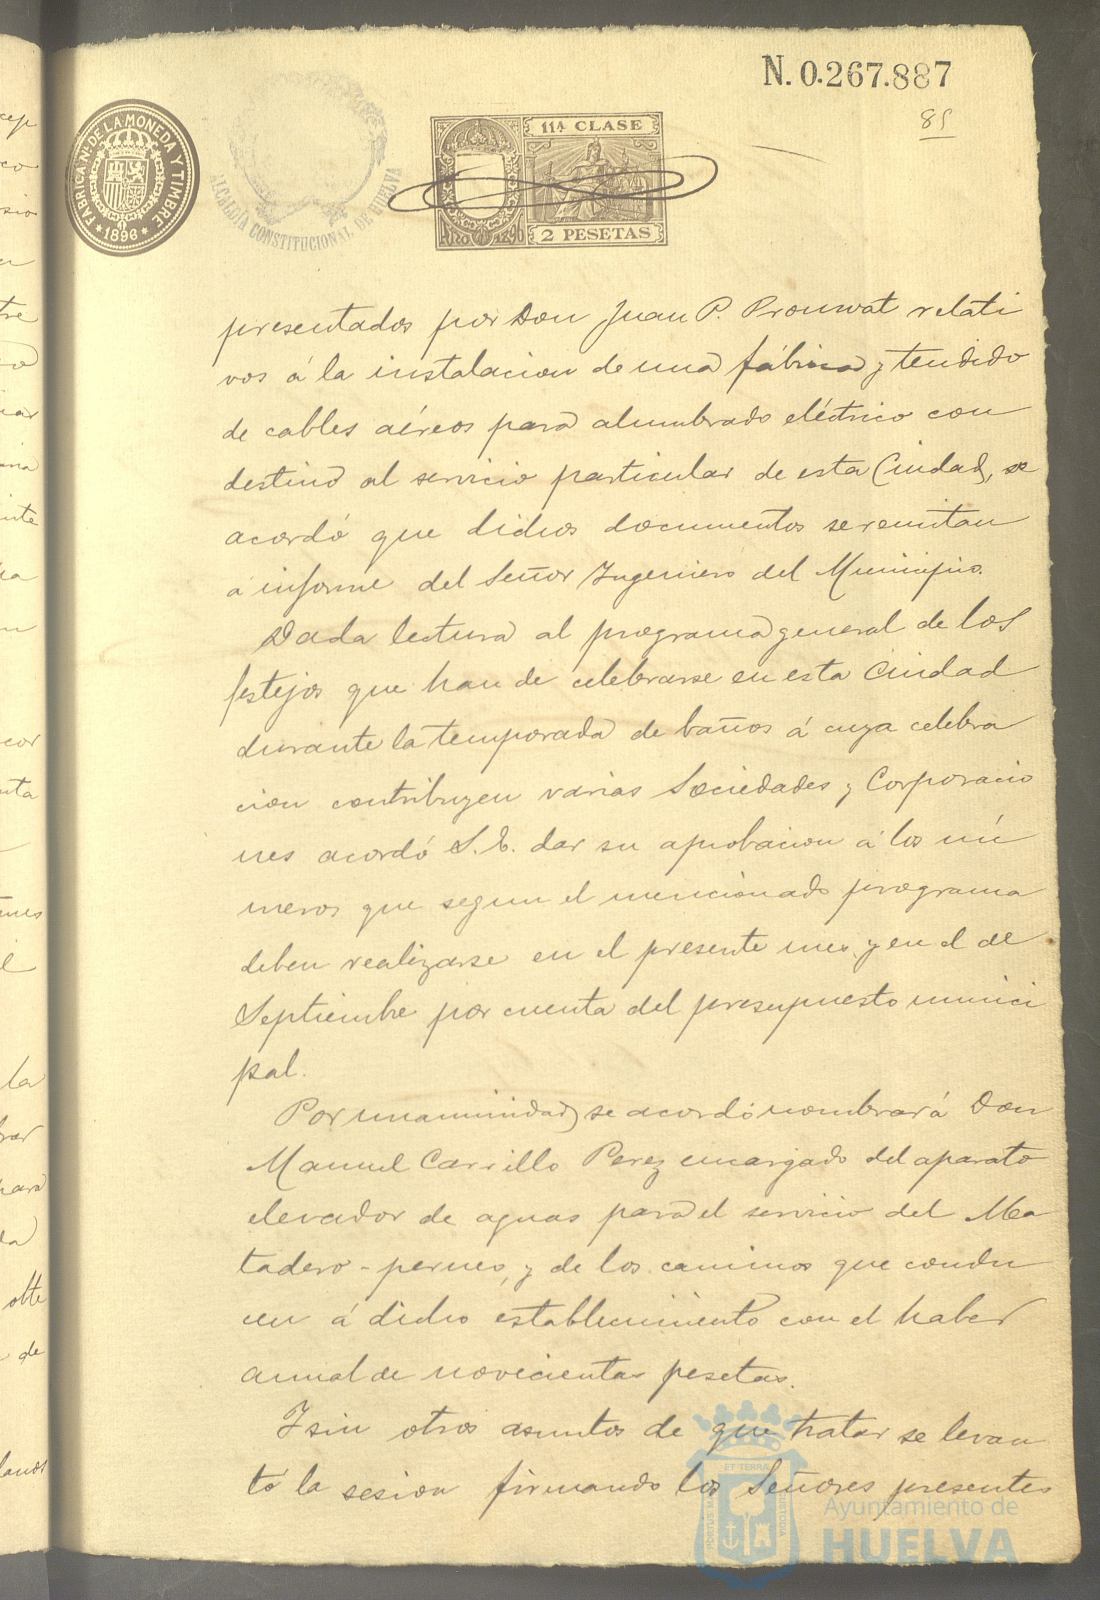 N. 0.267.887
85
FABRICA Nal. DE LA MONEDA Y TIMBRE
* 1896 *
ALCALDIA CONSTITUCIONAL DE HUELVA
11ª CLASE
2 PESETAS
presentados por Don Juan P. Prouwat relati
vos á la instalacion de una fábrica y tendido
de cables aéreos para alumbrado eléctrico con
destino al servicio particular de esta Ciudad, se
acordó que dichos documentos se remitan
á informe del Señor Ingeniero del Municipio.
Dada lectura al programa general de los
festejos que han de celebrarse en esta Ciudad
durante la temporada de baños á cuya celebra
cion contribuyen varias Sociedades y Corporacio
nes acordó S.E. dar su aprobacion á los nú
meros que segun el mencionado programa
deben realizarse en el presente mes y en el de
Septiembre por cuenta del presupuesto munici
pal.
Por unanimidad se acordó nombrar á Don
Manuel Carrillo Perez encargado del aparato
elevador de aguas para el servicio del Ma
tadero-pernes, y de los caminos que condu
cen á dicho establecimiento con el haber
anual de novecientas pesetas.
Y sin otros asuntos de que tratar se levan
tó la sesion firmando los Señores presentes
Ayuntamiento de
HUELVA